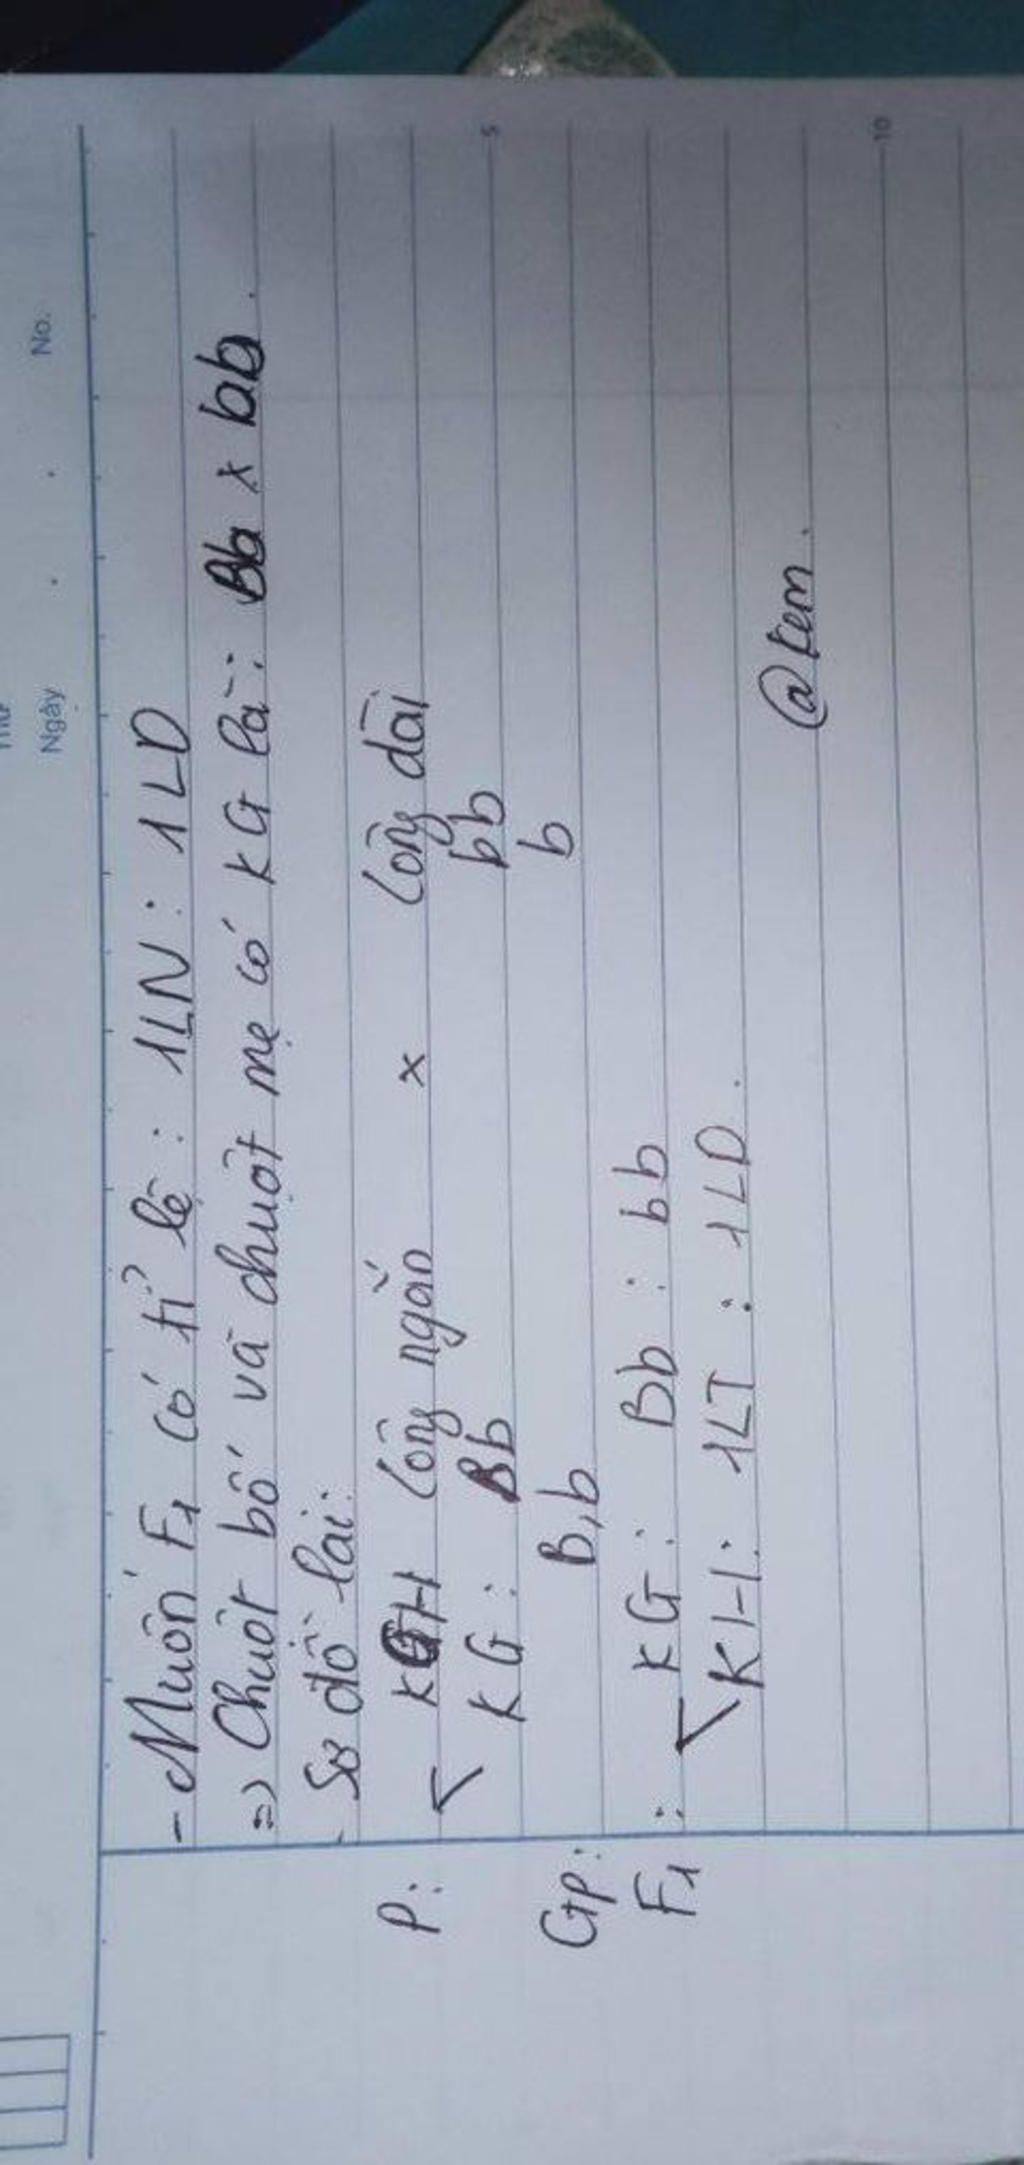 No.
Ngày
5
10
- Muốn F1 có tỉ lệ : 1LN : 1LD
=> Chuột bố và chuột mẹ có KG là : Bb x bb.
Sơ đồ lai:
P: KGH Lông ngắn x Lông dài
KG : Bb bb
GP: B,b b
F1 : KG : Bb : bb
KH: 1LT : 1LD.
@tem.